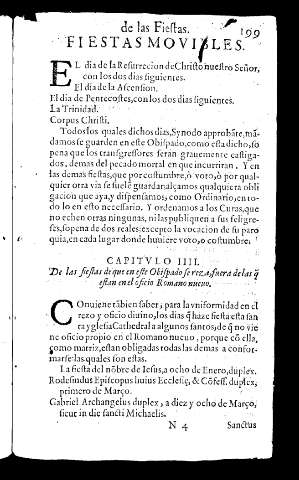 de las Fiestas. 199
FIESTAS MOVIBLES.
EL dia de la Resurrecion de Christo nuestro Señor,
con los dos dias siguientes.
El dia de la Ascension.
El dia de Pentecostes, con los dos dias siguientes.
La Trinidad.
Corpus Christi.
Todos los quales dichos dias, Synodo approbãte, mã-
damos se guarden en este Obispado, como esta dicho, so
pena que los transgressores seran grauemente castiga-
dos, demas del pecado mortal en que incurriran. Y en
las demas fiestas, que por costumbre, ò voto, ò por qual-
quier otra via se suele guardar, alçamos qualquiera obli
gacion que aya, y dispensamos, como Ordinario, en to-
do lo en esto necessario. Y ordenamos a los Curas, que
no echen otras ningunas, ni las publiquen a sus feligre-
ses, so pena de dos reales: excepto la vocacion de su paro
quia, en cada lugar donde huuiere voto, o costumbre.
CAPITVLO IIII.
De las fiestas de que en este Obispado se reza, fuera de las q̃
estan en el oficio Romano nueuo.
COnuiene tãbien saber, para la vniformidad en el
rezo y oficio diuino, los dias q̃ haze fiesta esta san
ta yglesia Cathedral a algunos santos, de q̃ no vie
ne oficio propio en el Romano nueuo, porque cõ ella,
como matriz, estan obligadas todas las demas a confor-
marse: las quales son estas.
La fiesta del nõbre de Iesus, a ocho de Enero, duplex.
Rodesindus Episcopus huius Ecclesię, & Cõfess. duplex,
primero de Março.
Gabriel Archangelus duplex, a diez y ocho de Março,
sicut in die sancti Michaelis.
N 4 Sanctus